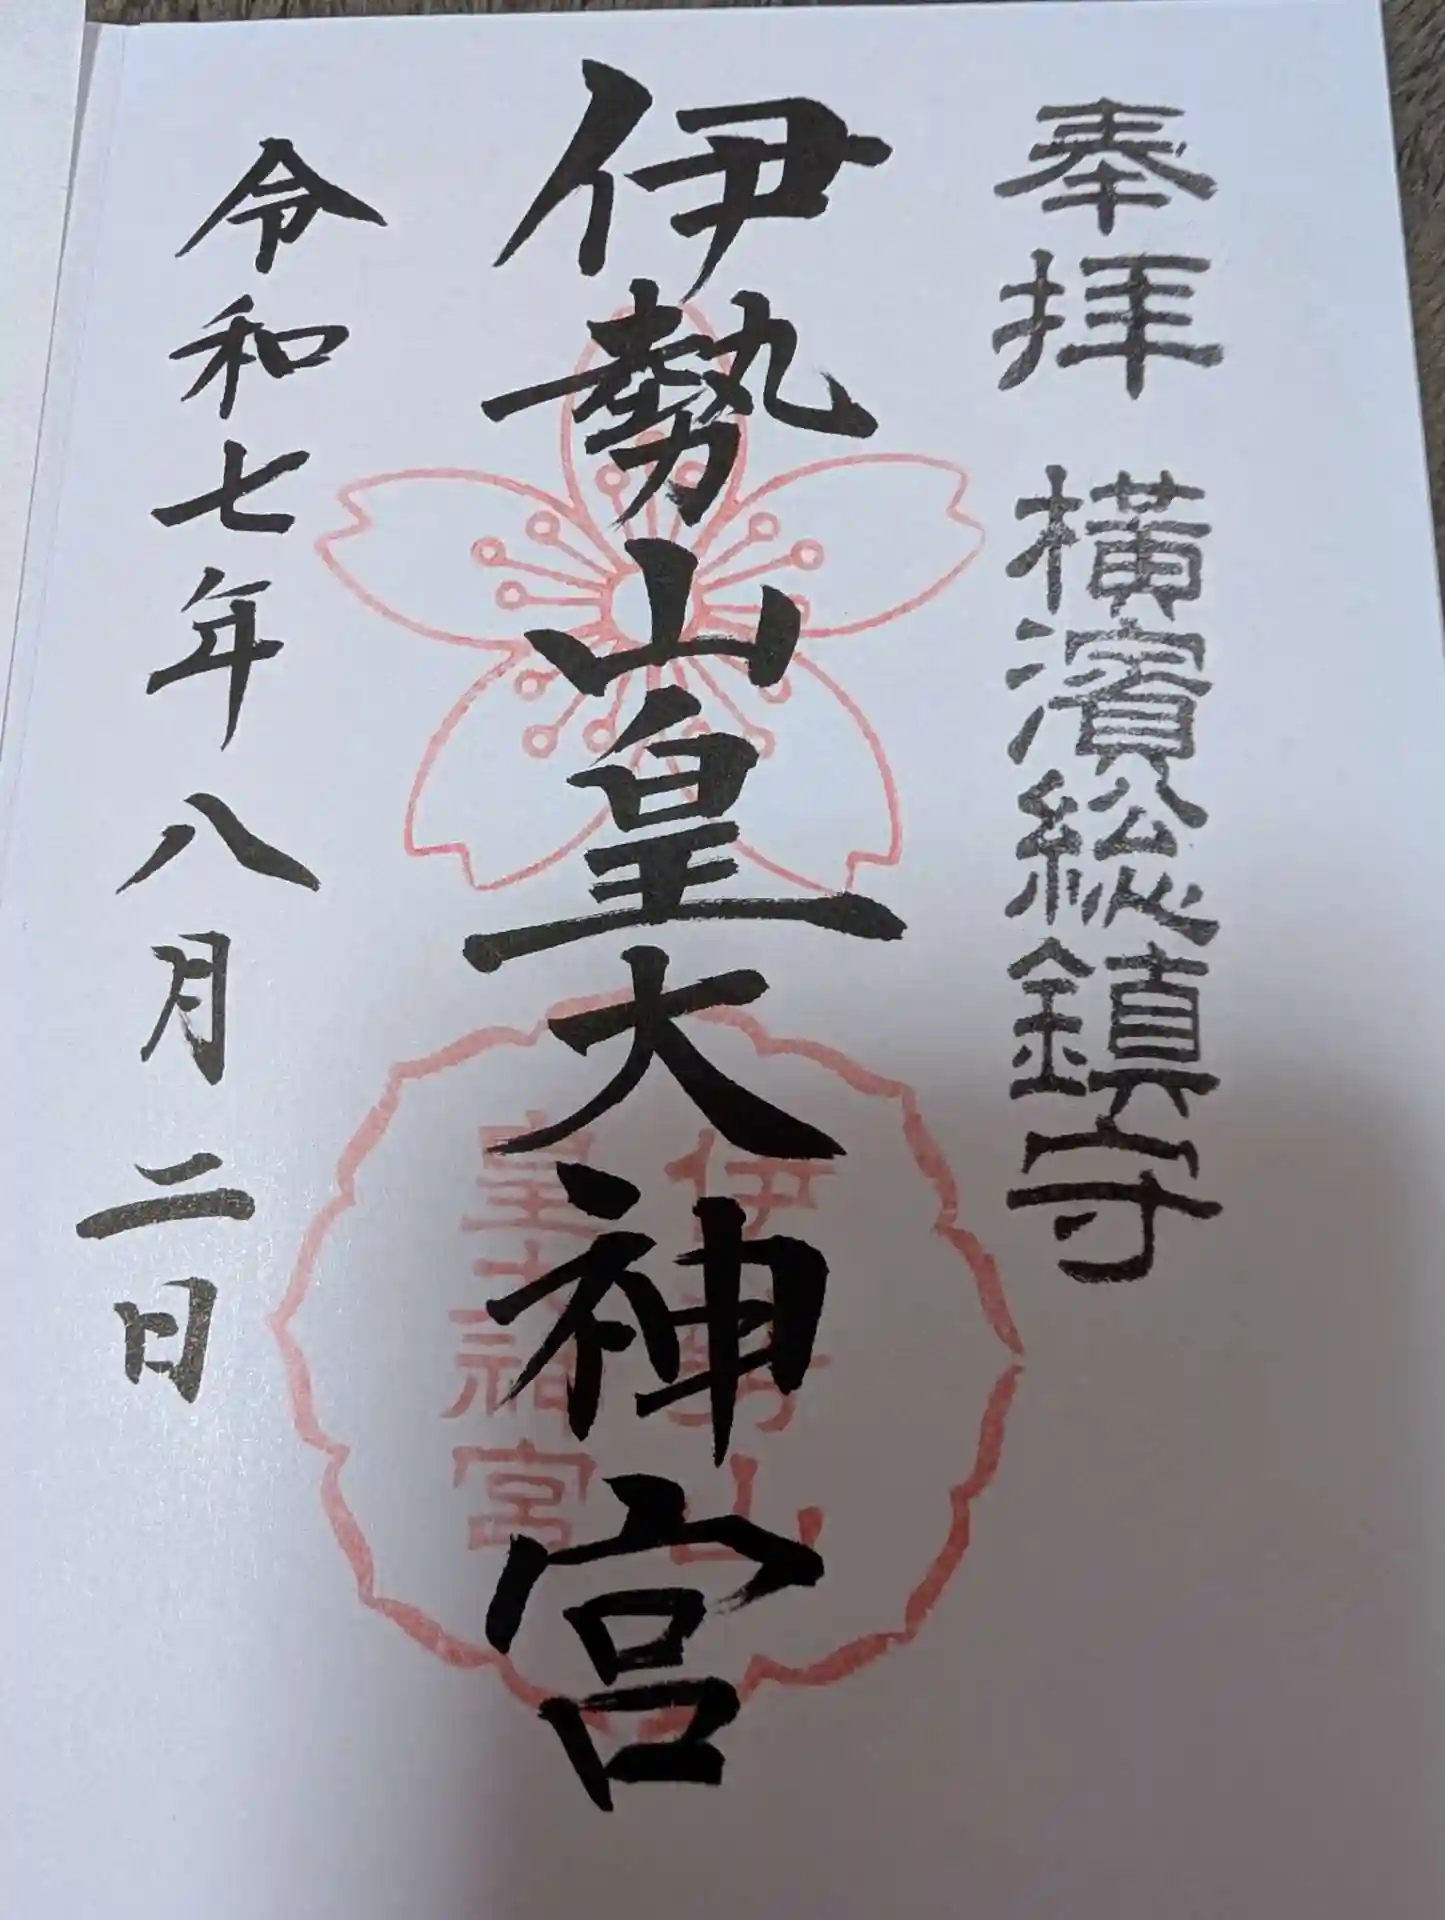 奉拝 横濱総鎮守
伊勢山皇大神宮
伊勢山
皇大神宮
令和七年八月二日